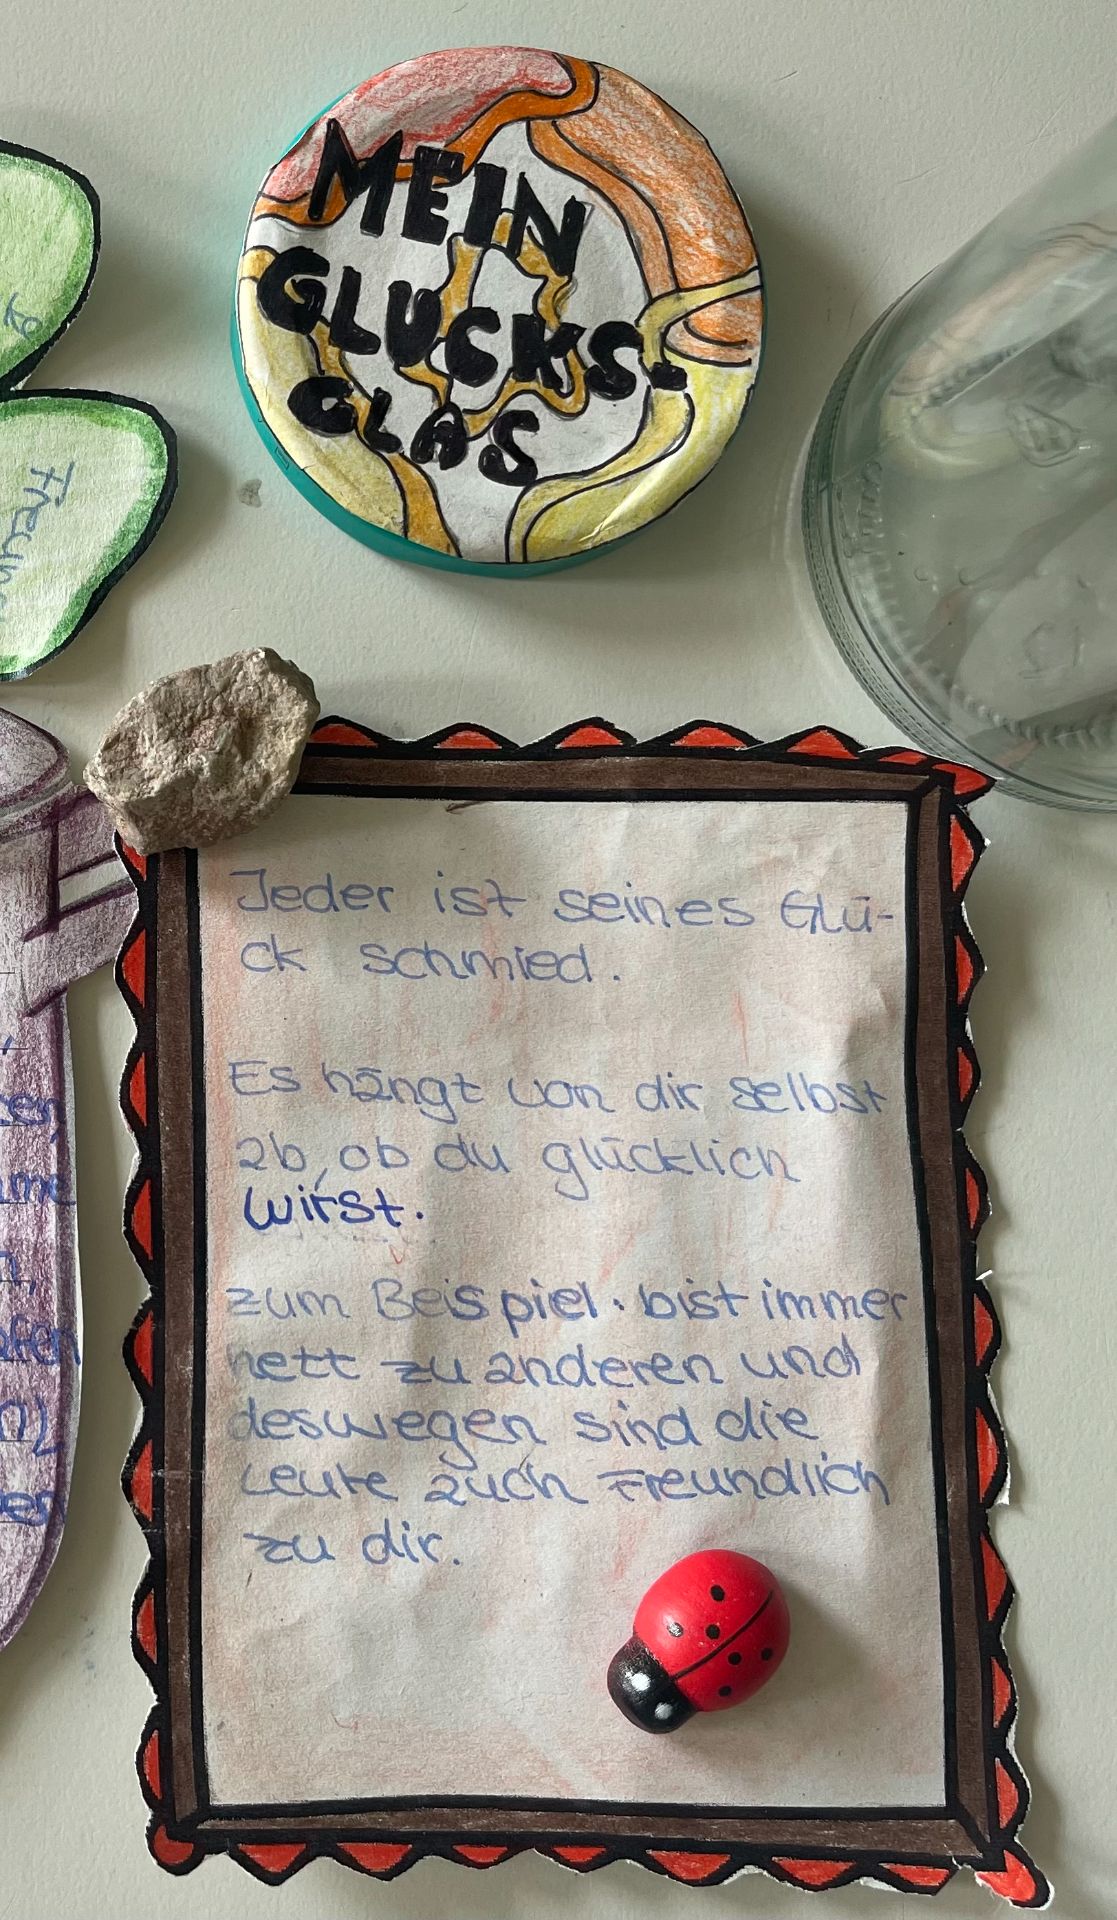 MEIN
GLUCKS-
GLAS
Jeder ist seines Glü-
ck schmied.
Es hängt von dir selbst
ab, ob du glücklich
wirst.
zum Beispiel. bist immer
nett zu anderen und
deswegen sind die
Leute auch Freundlich
zu dir.